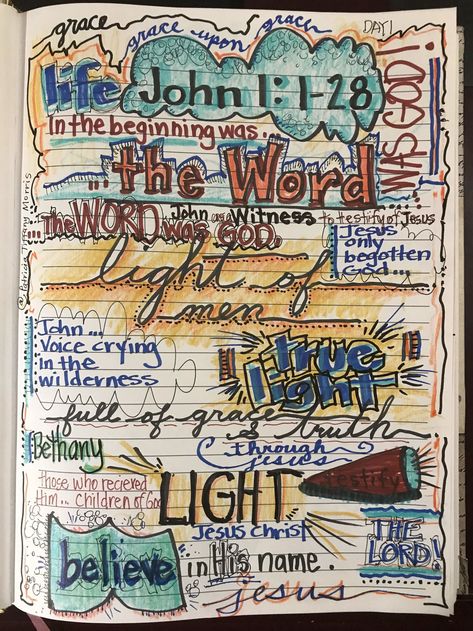 grace grace upon grace
DAY 1
life John 1:1-28
WAS GOD!
In the beginning was...
... the Word
...the WORD was GOD.
John as a Witness to testify of Jesus
Jesus only begotten God...
light of
men
John...
Voice crying
in the
wilderness
true
light
full of grace & truth
Bethany
through
jesus
Those who recieved
Him... children of God
LIGHT
testify
Jesus Christ
THE
LORD!
believe in His name.
jesus
@ Patricia Tiffany Morris